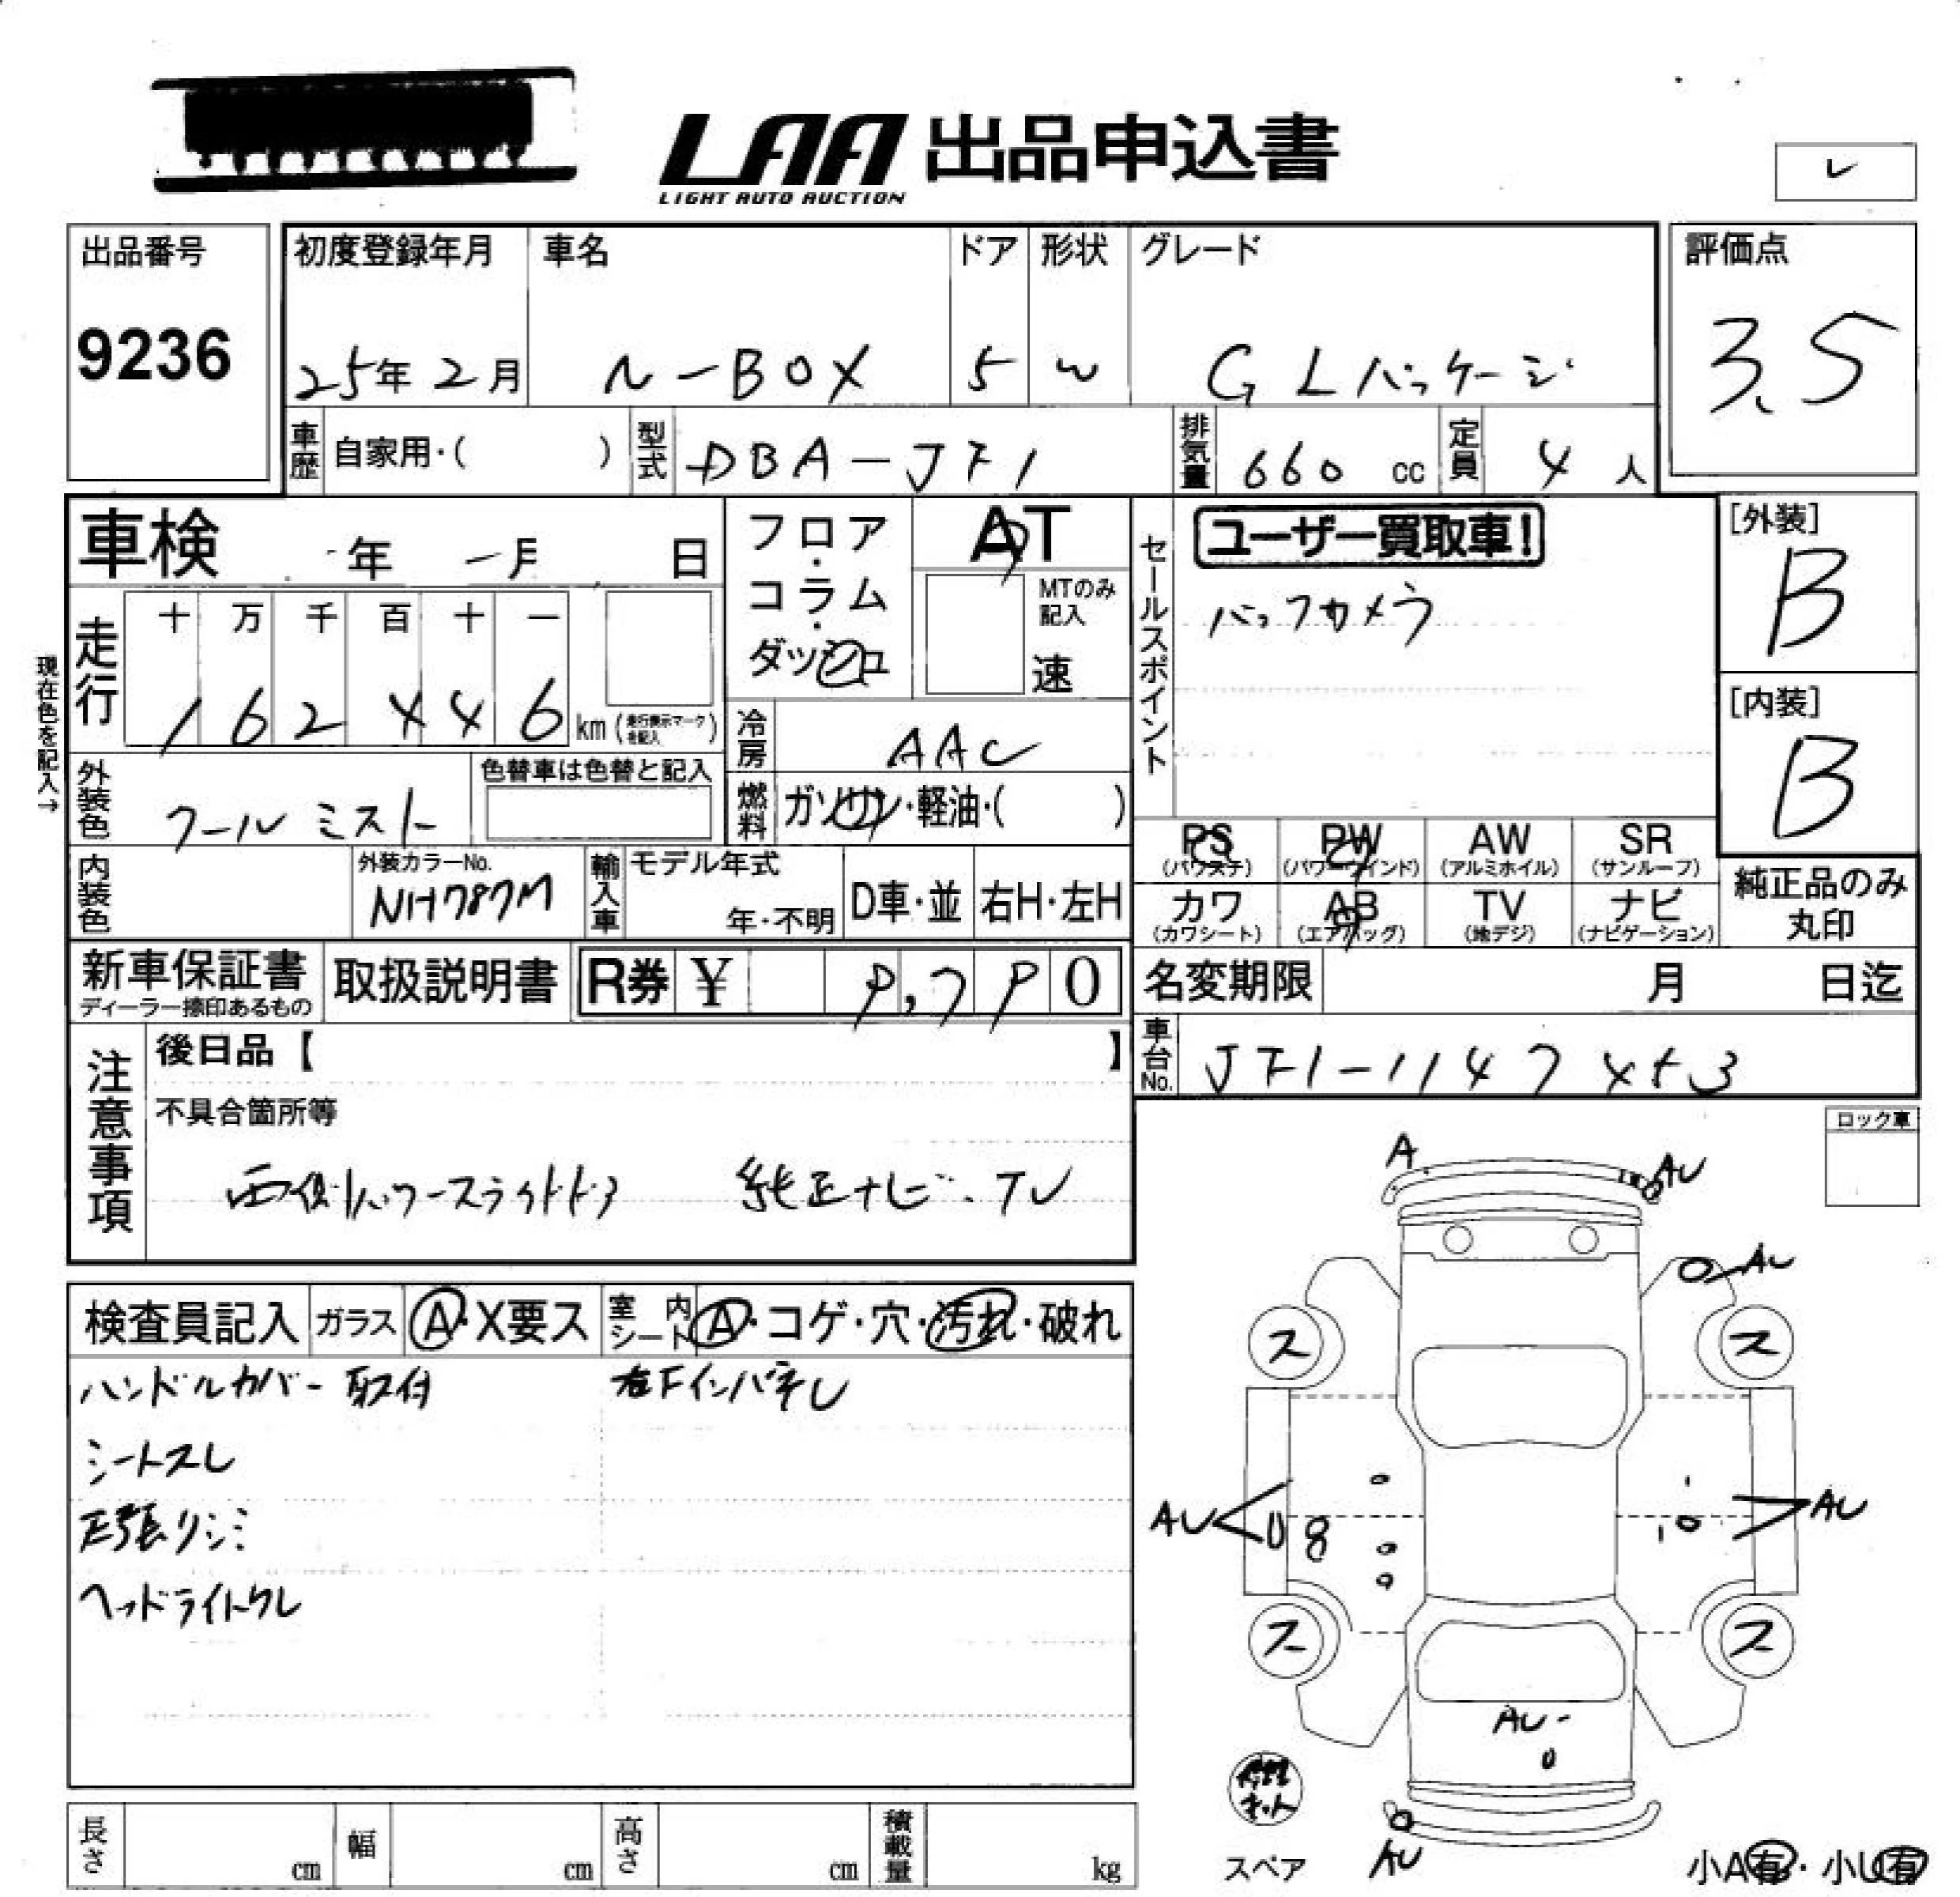 LAA 出品申込書
LIGHT AUTO AUCTION
レ
出品番号
9236
初度登録年月
25年 2月
車名
N-BOX
ドア
5
形状
W
グレード
G Lパッケージ
評価点
3.5
車歴 自家用・( )
型式 DBA-JF1
排気量 660 cc
定員 4 人
車検 年 月 日
フロア・コラム・ダッシュ
AT
MTのみ記入
速
セールスポイント
ユーザー買取車!
バックカメラ
[外装]
B
[内装]
B
現在色を記入→
走行
十 万 千 百 十 一
1 6 2 4 4 6 km (走行表示マークを記入)
冷房 AAC
燃料 ガソリン・軽油・( )
外装色 クールミスト
色替車は色替と記入
内装色
外装カラーNo.
NH787M
輸入車
モデル年式
年・不明
D車・並
右H・左H
PS (パワステ)
PW (パワーウインド)
AW (アルミホイル)
SR (サンルーフ)
カワ (カワシート)
AB (エアバッグ)
TV (地デジ)
ナビ (ナビゲーション)
純正品のみ丸印
新車保証書
ディーラー捺印あるもの
取扱説明書
R券 ¥ 9,790
名変期限 月 日迄
車台No. JF1-1147453
注意事項
後日品【 】
不具合箇所等
両側パワースライドドア 純正ナビ・TV
ロック車
検査員記入
ガラス A・X要ス
室内シート A・コゲ・穴・汚れ・破れ
ハンドルカバー取付
右Fインパネし
シートスレ
天張リシミ
ヘッドライトクレ
A
AU
AU
ス
ス
AU
AU
ス
ス
AU
修理キット
スペア
AU
小A有・小U有
長さ cm
幅 cm
高さ cm
積載量 kg